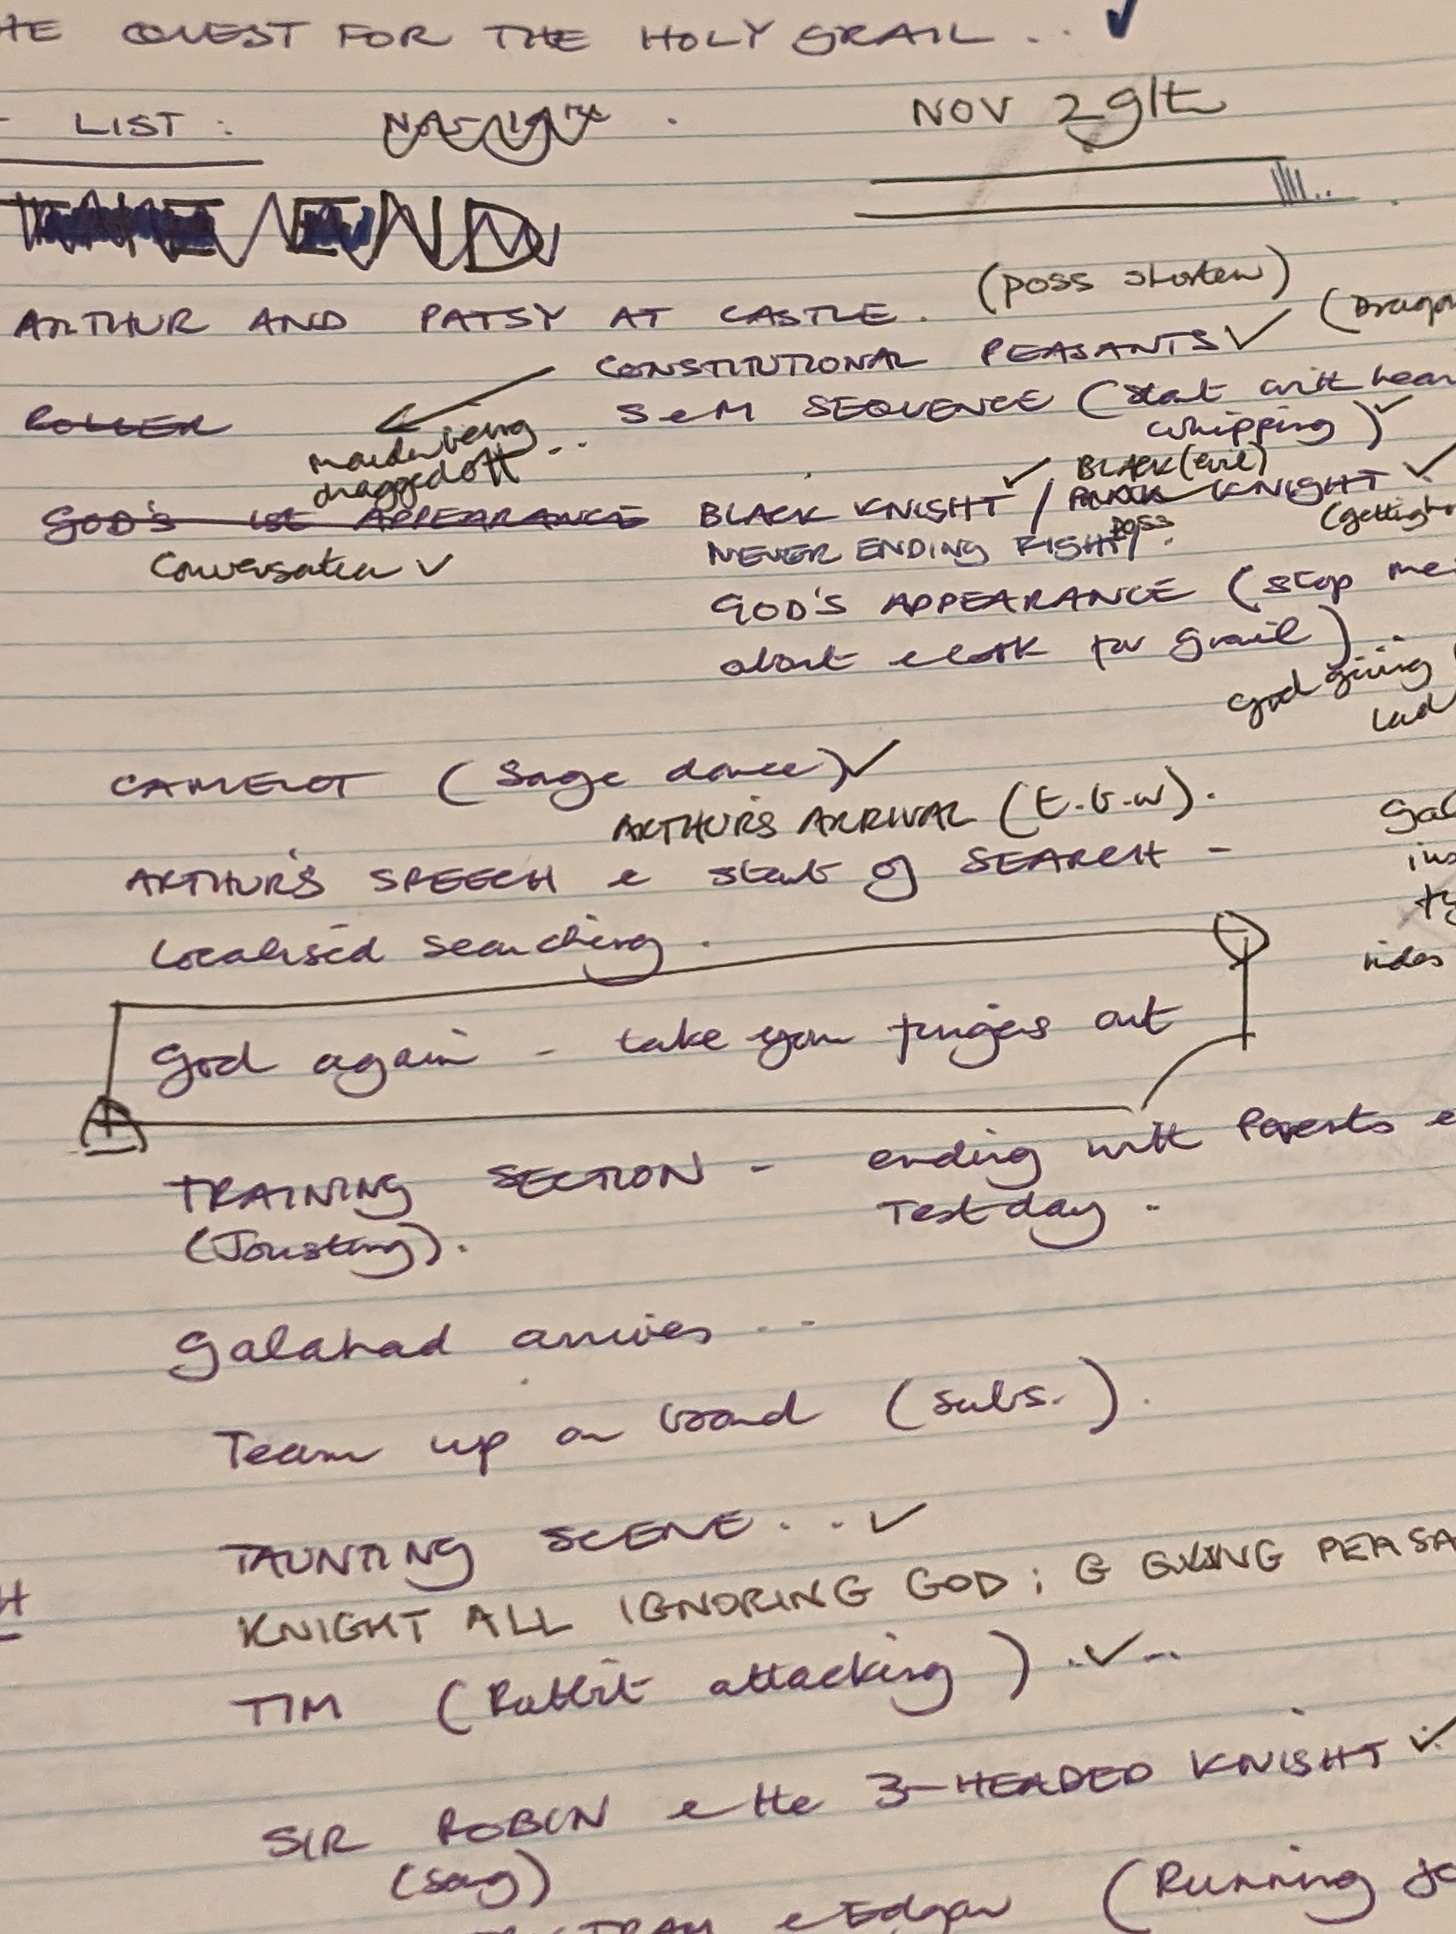 THE QUEST FOR THE HOLY GRAIL . . ✓
LIST : NOV 29th
ARTHUR AND PATSY AT CASTLE. (poss shorten)
CONSTITUTIONAL PEASANTS ✓ (Dragon
ROLLER
S & M SEQUENCE (start with
whipping) ✓
maiden being
dragged off ...
BLACK (evil)
GOD'S 1st APPEARANCE BLACK KNIGHT ✓ / KNIGHT ✓
Conversation ✓
NEVER ENDING FIGHT poss
GOD'S APPEARANCE (stop me
about & look for grail) .
God giving
CAMELOT (Song & dance) ✓
ARTHUR'S ARRIVAL (E.G.W).
ARTHUR'S SPEECH & start of SEARCH -
Localised searching .
rides
God again - take your fingers out
TRAINING SECTION - ending with Parents &
(Jousting). Test day .
Galahad arrives . . .
Team up on board (subs.) .
TAUNTING SCENE . . . ✓
KNIGHT ALL IGNORING GOD ; G GIVING PEASA
TIM (Rabbit attacking) . ✓ . .
SIR ROBIN & the 3-HEADED KNIGHT ✓
(song)
& Edgar (Running